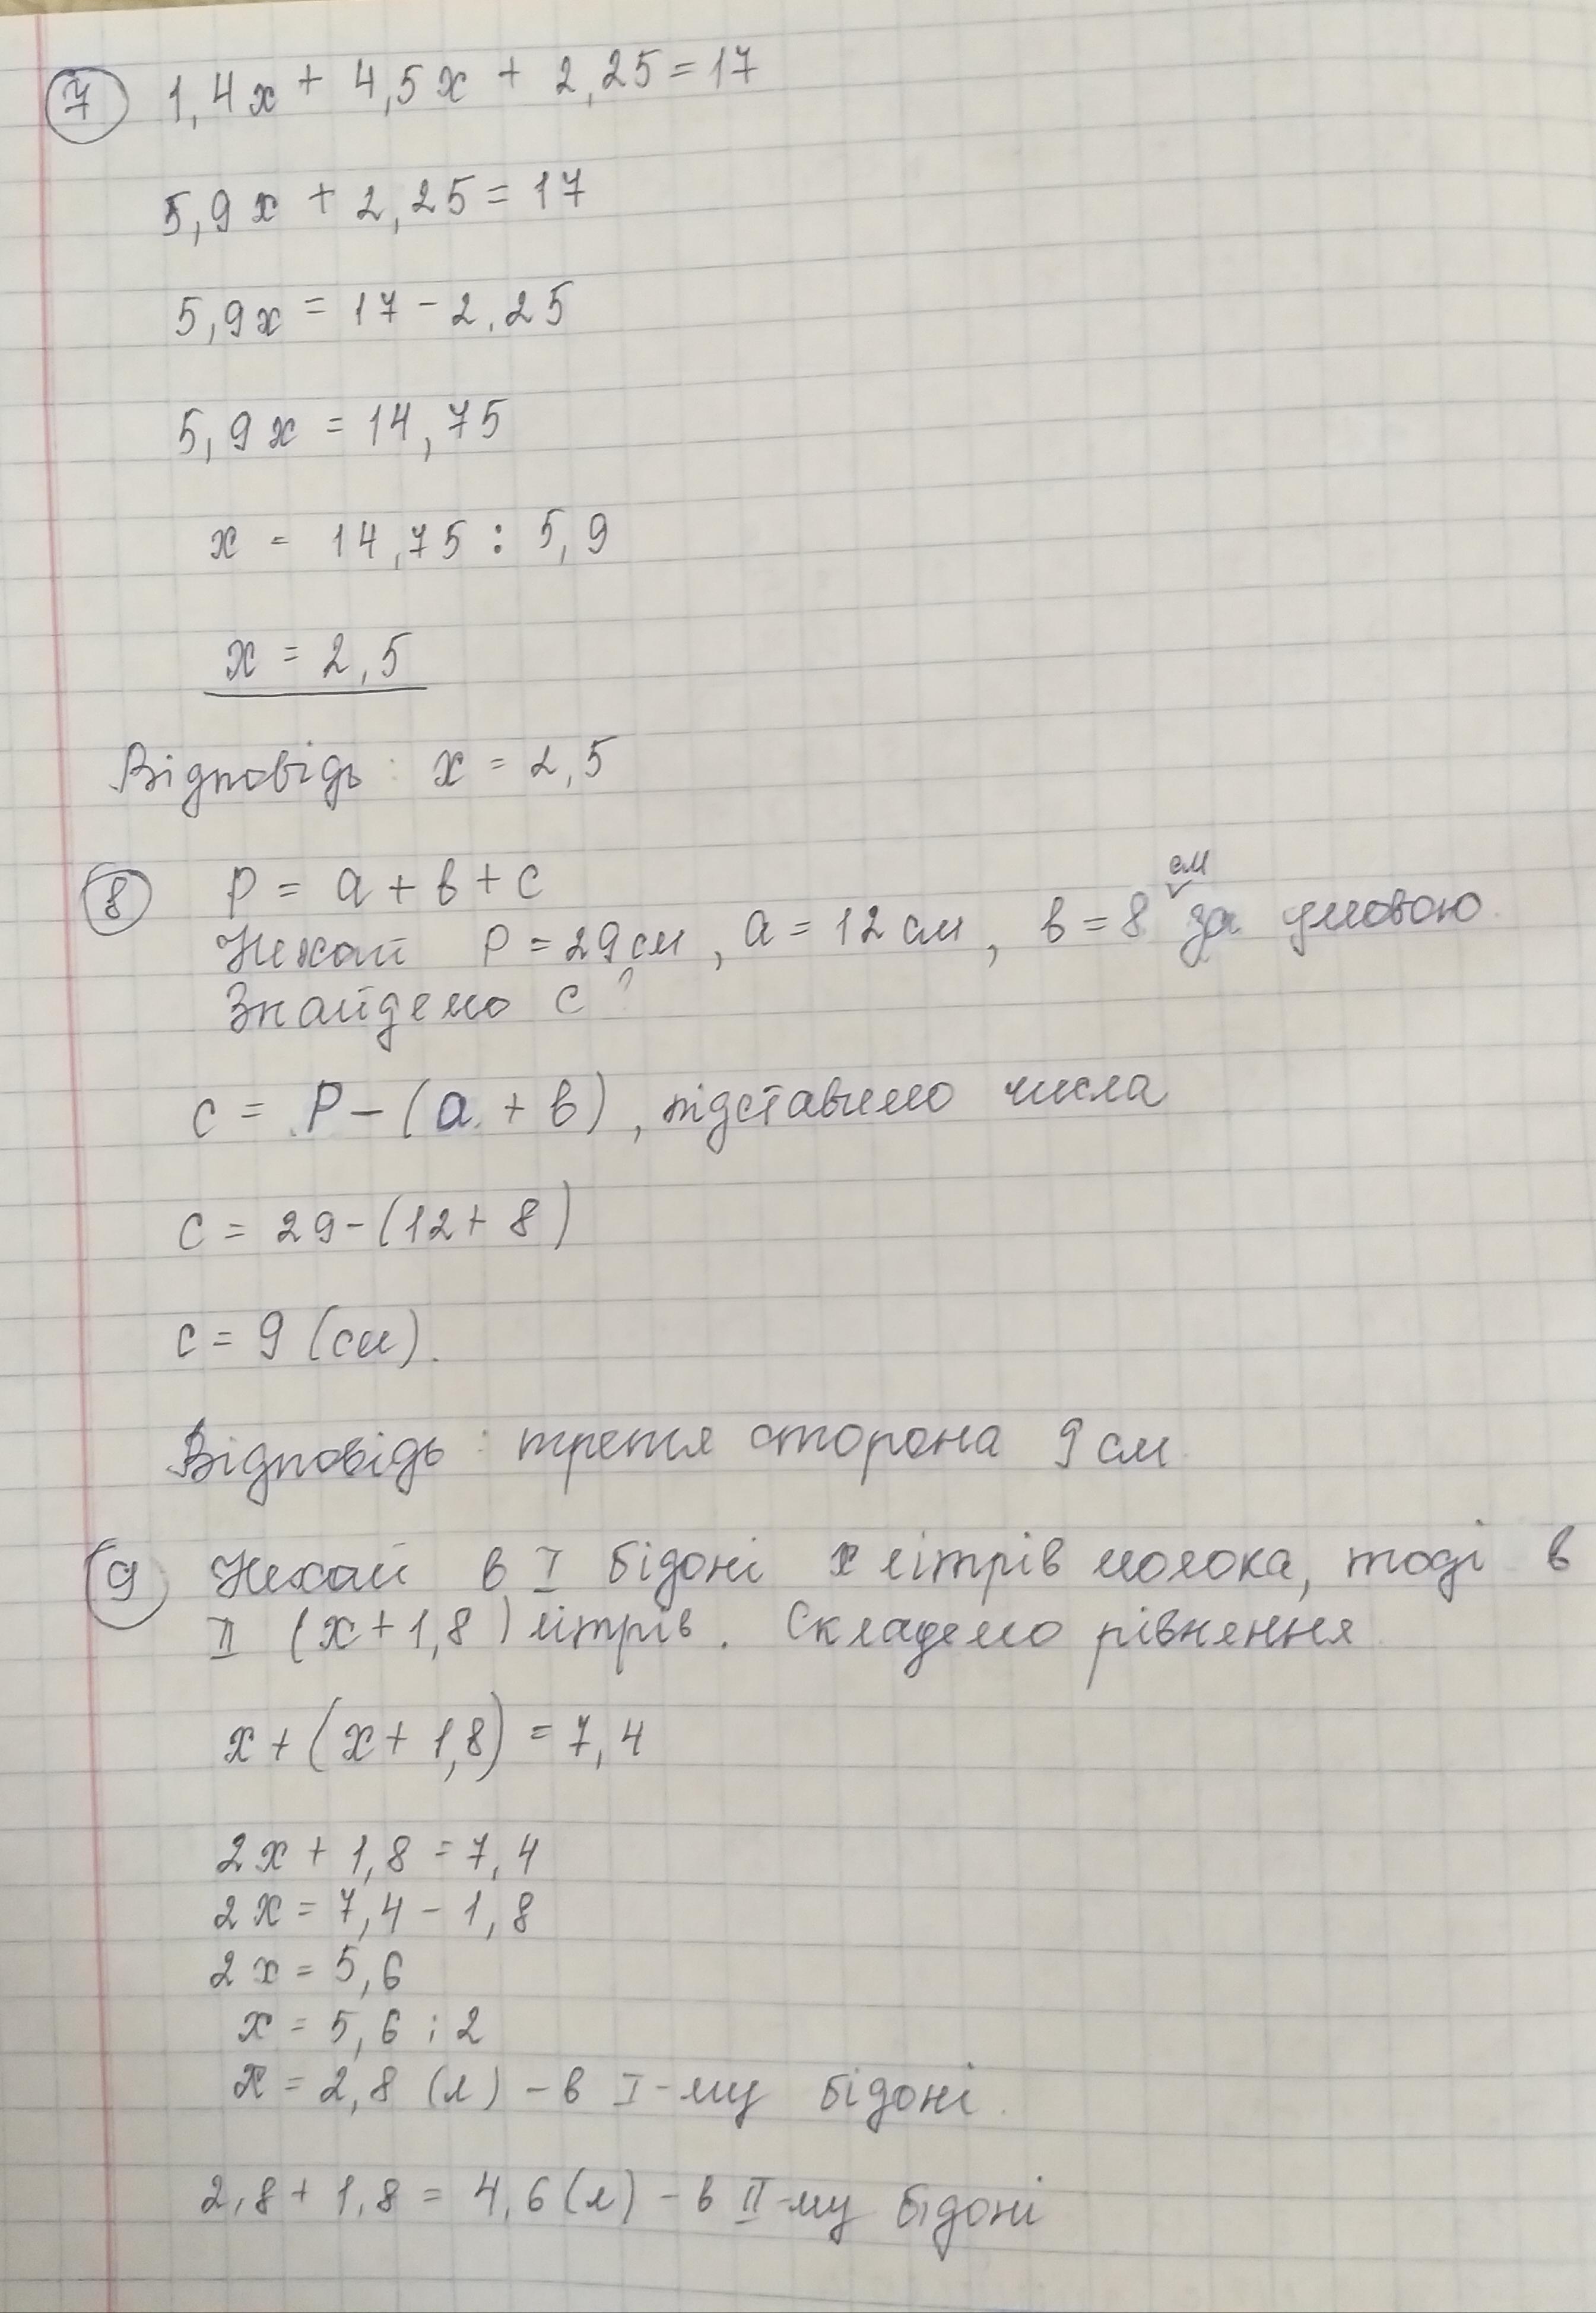 7 1,4x + 4,5x + 2,25 = 17
5,9x + 2,25 = 17
5,9x = 17 - 2,25
5,9x = 14,75
x = 14,75 : 5,9
x = 2,5
Відповідь: x = 2,5
8 P = a + b + c
см
Нехай P = 29 см, a = 12 см, b = 8 за умовою.
Знайдемо c ?
c = P - (a + b), підставимо числа
c = 29 - (12 + 8)
c = 9 (см).
Відповідь: третя сторона 9 см
9 Нехай в I бідоні x літрів молока, тоді в
II (x + 1,8) літрів. Складемо рівняння
x + (x + 1,8) = 7,4
2x + 1,8 = 7,4
2x = 7,4 - 1,8
2x = 5,6
x = 5,6 : 2
x = 2,8 (л) - в I-му бідоні.
2,8 + 1,8 = 4,6 (л) - в II-му бідоні